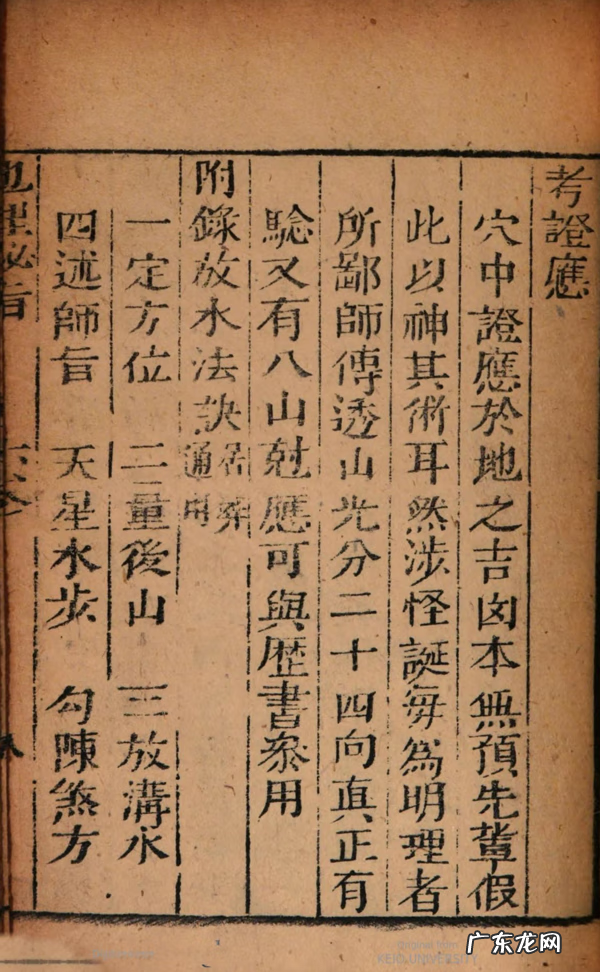 考證應
穴中證應於地之吉囟本無預先輩假
此以神其術耳然涉怪誕每為明理者
所鄙師傳透山光分二十四向真正有
騐又有八山尅應可與歴書叅用
附錄放水法訣居葬通用
一定方位 二量後山 三放溝水
四述師旨 天星水步 勾陳煞方
地理秘旨
廣东龙网
KEIO UNIVERSITY